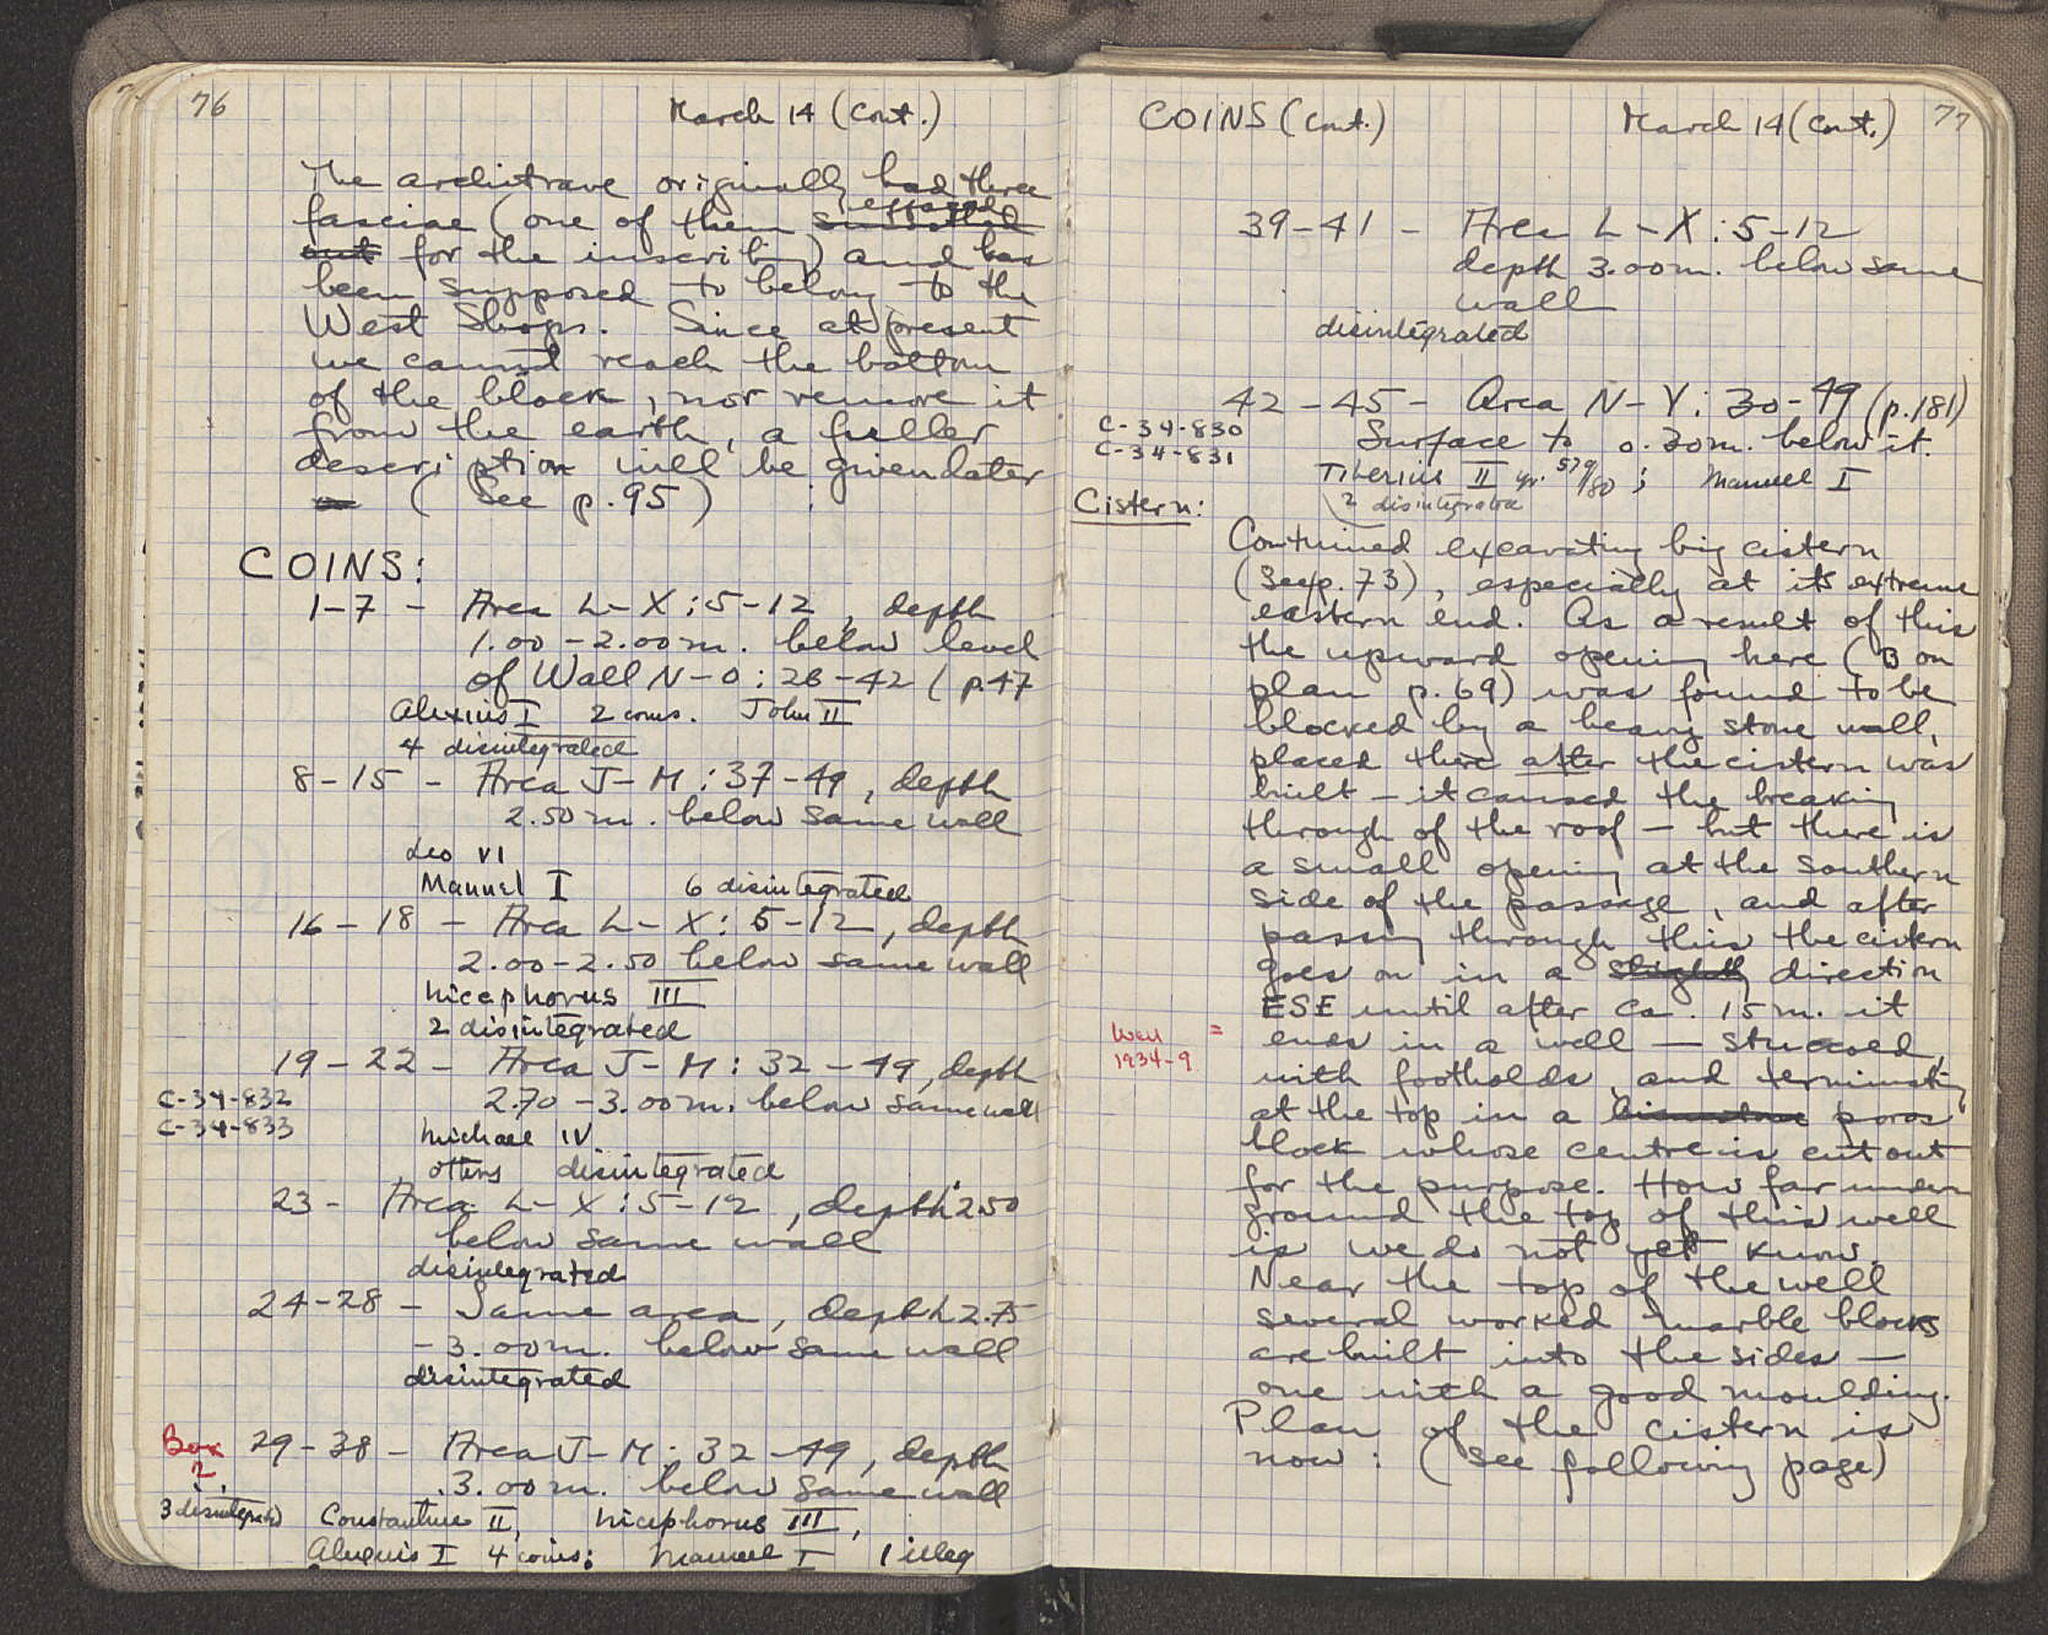 76
March 14 (Cont.)
The architrave originally had three
fasciae (one of them smoothed effaced
out for the inscribing) and has
been supposed to belong to the
West Shops. Since at present
we cannot reach the bottom
of the block, nor remove it
from the earth, a fuller
description will be given later
(See p. 95)
COINS:
1-7 - Area L-X:5-12, depth
1.00-2.00m. below level
of Wall N-O:26-42 (p.47
Alexius I 2 coins. John II
4 disintegrated
8-15 - Area J-M:37-49, depth
2.50m. below same wall
Leo VI
Manuel I 6 disintegrated
16-18 - Area L-X:5-12, depth
2.00-2.50 below same wall
Nicephorus III
2 disintegrated
19-22 - Area J-M:32-49, depth
C-34-832
C-34-833
2.70-3.00m. below same wall
Michael IV
others disintegrated
23- Area L-X:5-12, depth 2.50
below same wall
disintegrated
24-28 - Same area, depth 2.75
-3.00m. below same wall
disintegrated
Box
2
29-38 - Area J-M:32-49, depth
3.00m. below same wall
3 disintegrated Constantine II, Nicephorus III,
Alexius I 4 coins; Manuel I 1 illeg
COINS (Cont.) March 14 (Cont.) 77
39-41 - Area L-X:5-12
depth 3.00m. below same
wall
disintegrated
42-45 - Area N-Y:30-49 (p.181)
C-34-830
C-34-831
Surface to 0.30m. below it.
Tiberius II yr. 579/80; Manuel I
2 disintegrated
Cistern:
Continued excavating big cistern
(See p. 73), especially at its extreme
eastern end. As a result of this
the upward opening here (B on
plan p. 69) was found to be
blocked by a heavy stone wall,
placed there after the cistern was
built - it caused the breaking
through of the roof - but there is
a small opening at the southern
side of the passage, and after
passing through this the cistern
goes on in a slightly direction
ESE until after ca. 15 m. it
Well =
1934-9
ends in a well - stuccoed,
with footholds, and terminating
at the top in a limestone poros
block whose centre is cut out
for the purpose. How far under
ground the top of this well
is we do not yet know.
Near the top of the well
several worked marble blocks
are built into the sides -
one with a good moulding.
Plan of the cistern is
now: (See following page)